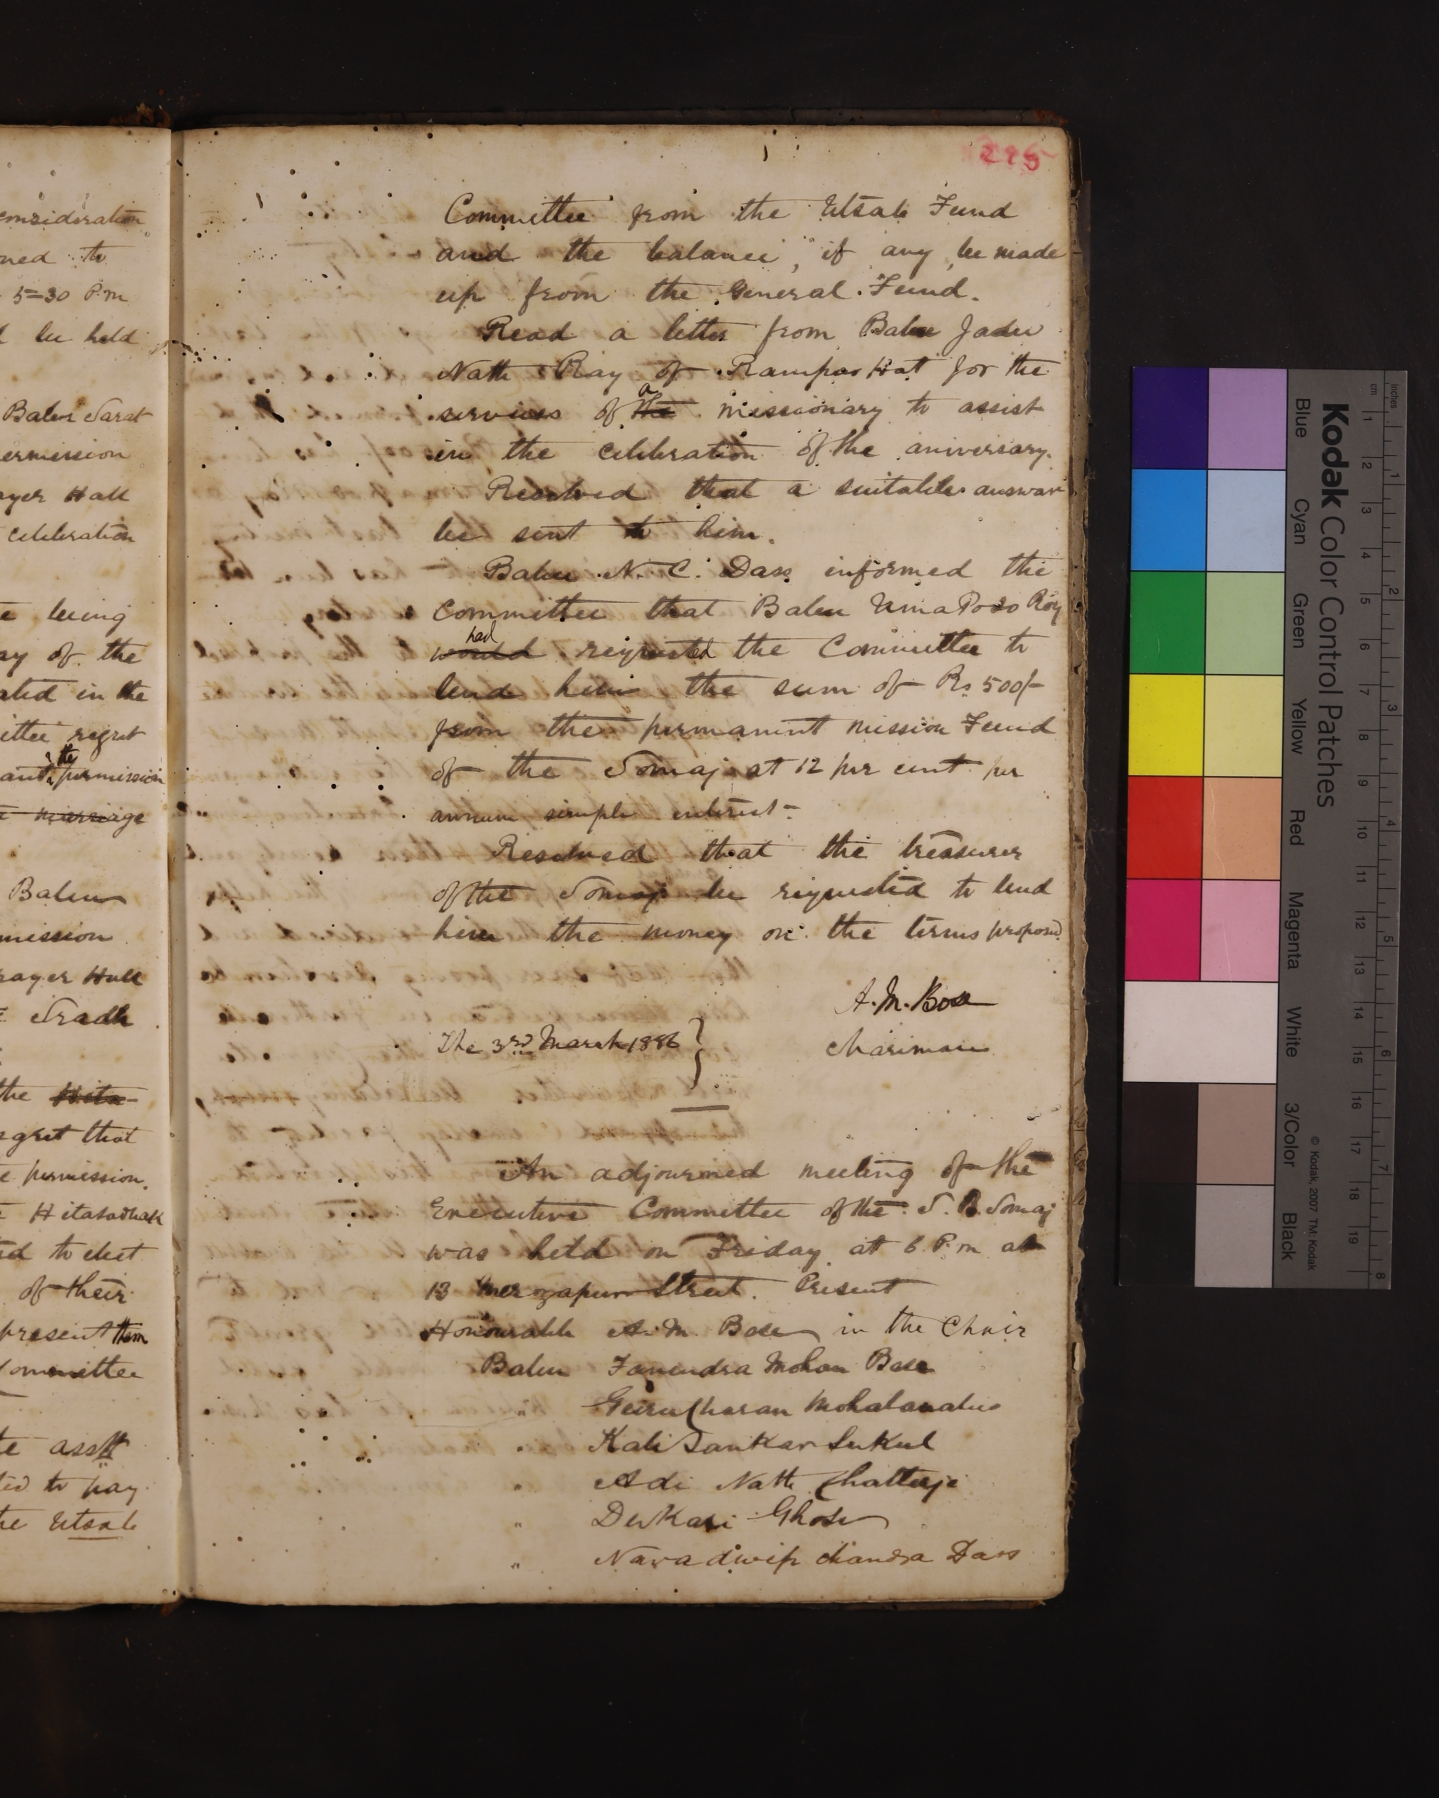 consideration
oned to
5=30 P.m
be held
Babu Sarat
ermission
ayer Hall
celebration
e being
ay of the
ated in the
ittee regret
the
permission
marriage
Babu
mission
rayer Hall
Sradh
the Hita-
egret that
e permission.
Hitasadhak
ed to elect
of their
present them
Committee
te asstt
ted to pay
the Utsab
225
Committee from the Utsab Fund
and the balance, if any, be made
up from the General Fund.
Read a letter from Babu Jadu
Nath Ray of Rampor Hat for the
a
services of the missionary to assist
in the celebration of the aniversary.
Resolved that a suitable answar
be sent to him.
Babu N. C. Dass informed the
committee that Babu Uma Podo Roy
had
would requested the Committee to
lend him the sum of Rs 500/-
from the permanent mission Fund
of the Somaj at 12 per cent per
annum simple interest-
Resolved that the treasurer
of the Somaj be requested to lend
him the money on the terms proposed.
A. M. Bose
Chariman
The 3rd March 1886
An adjourned meeting of the
Executive Committee of the S. B. Somaj
was held on Friday at 6 P.m at
13 Merozapur Street. Present
Honourable A. M. Bose in the Chair
Babu Fanendra Mohan Bose
" Guru Charan Mohalanabis
" Kali Sankar Sukul
" Adi Nath Chatterje
" Devkari Ghose
" Navadwip Chandra Dass
Kodak Color Control Patches
Blue
Cyan
Green
Yellow
Red
Magenta
White
3/Color
Black
© Kodak, 2007 TM: Kodak
inches
cm
1
2
3
4
5
6
7
8
9
10
11
12
13
14
15
16
17
18
19
1
2
3
4
5
6
7
8